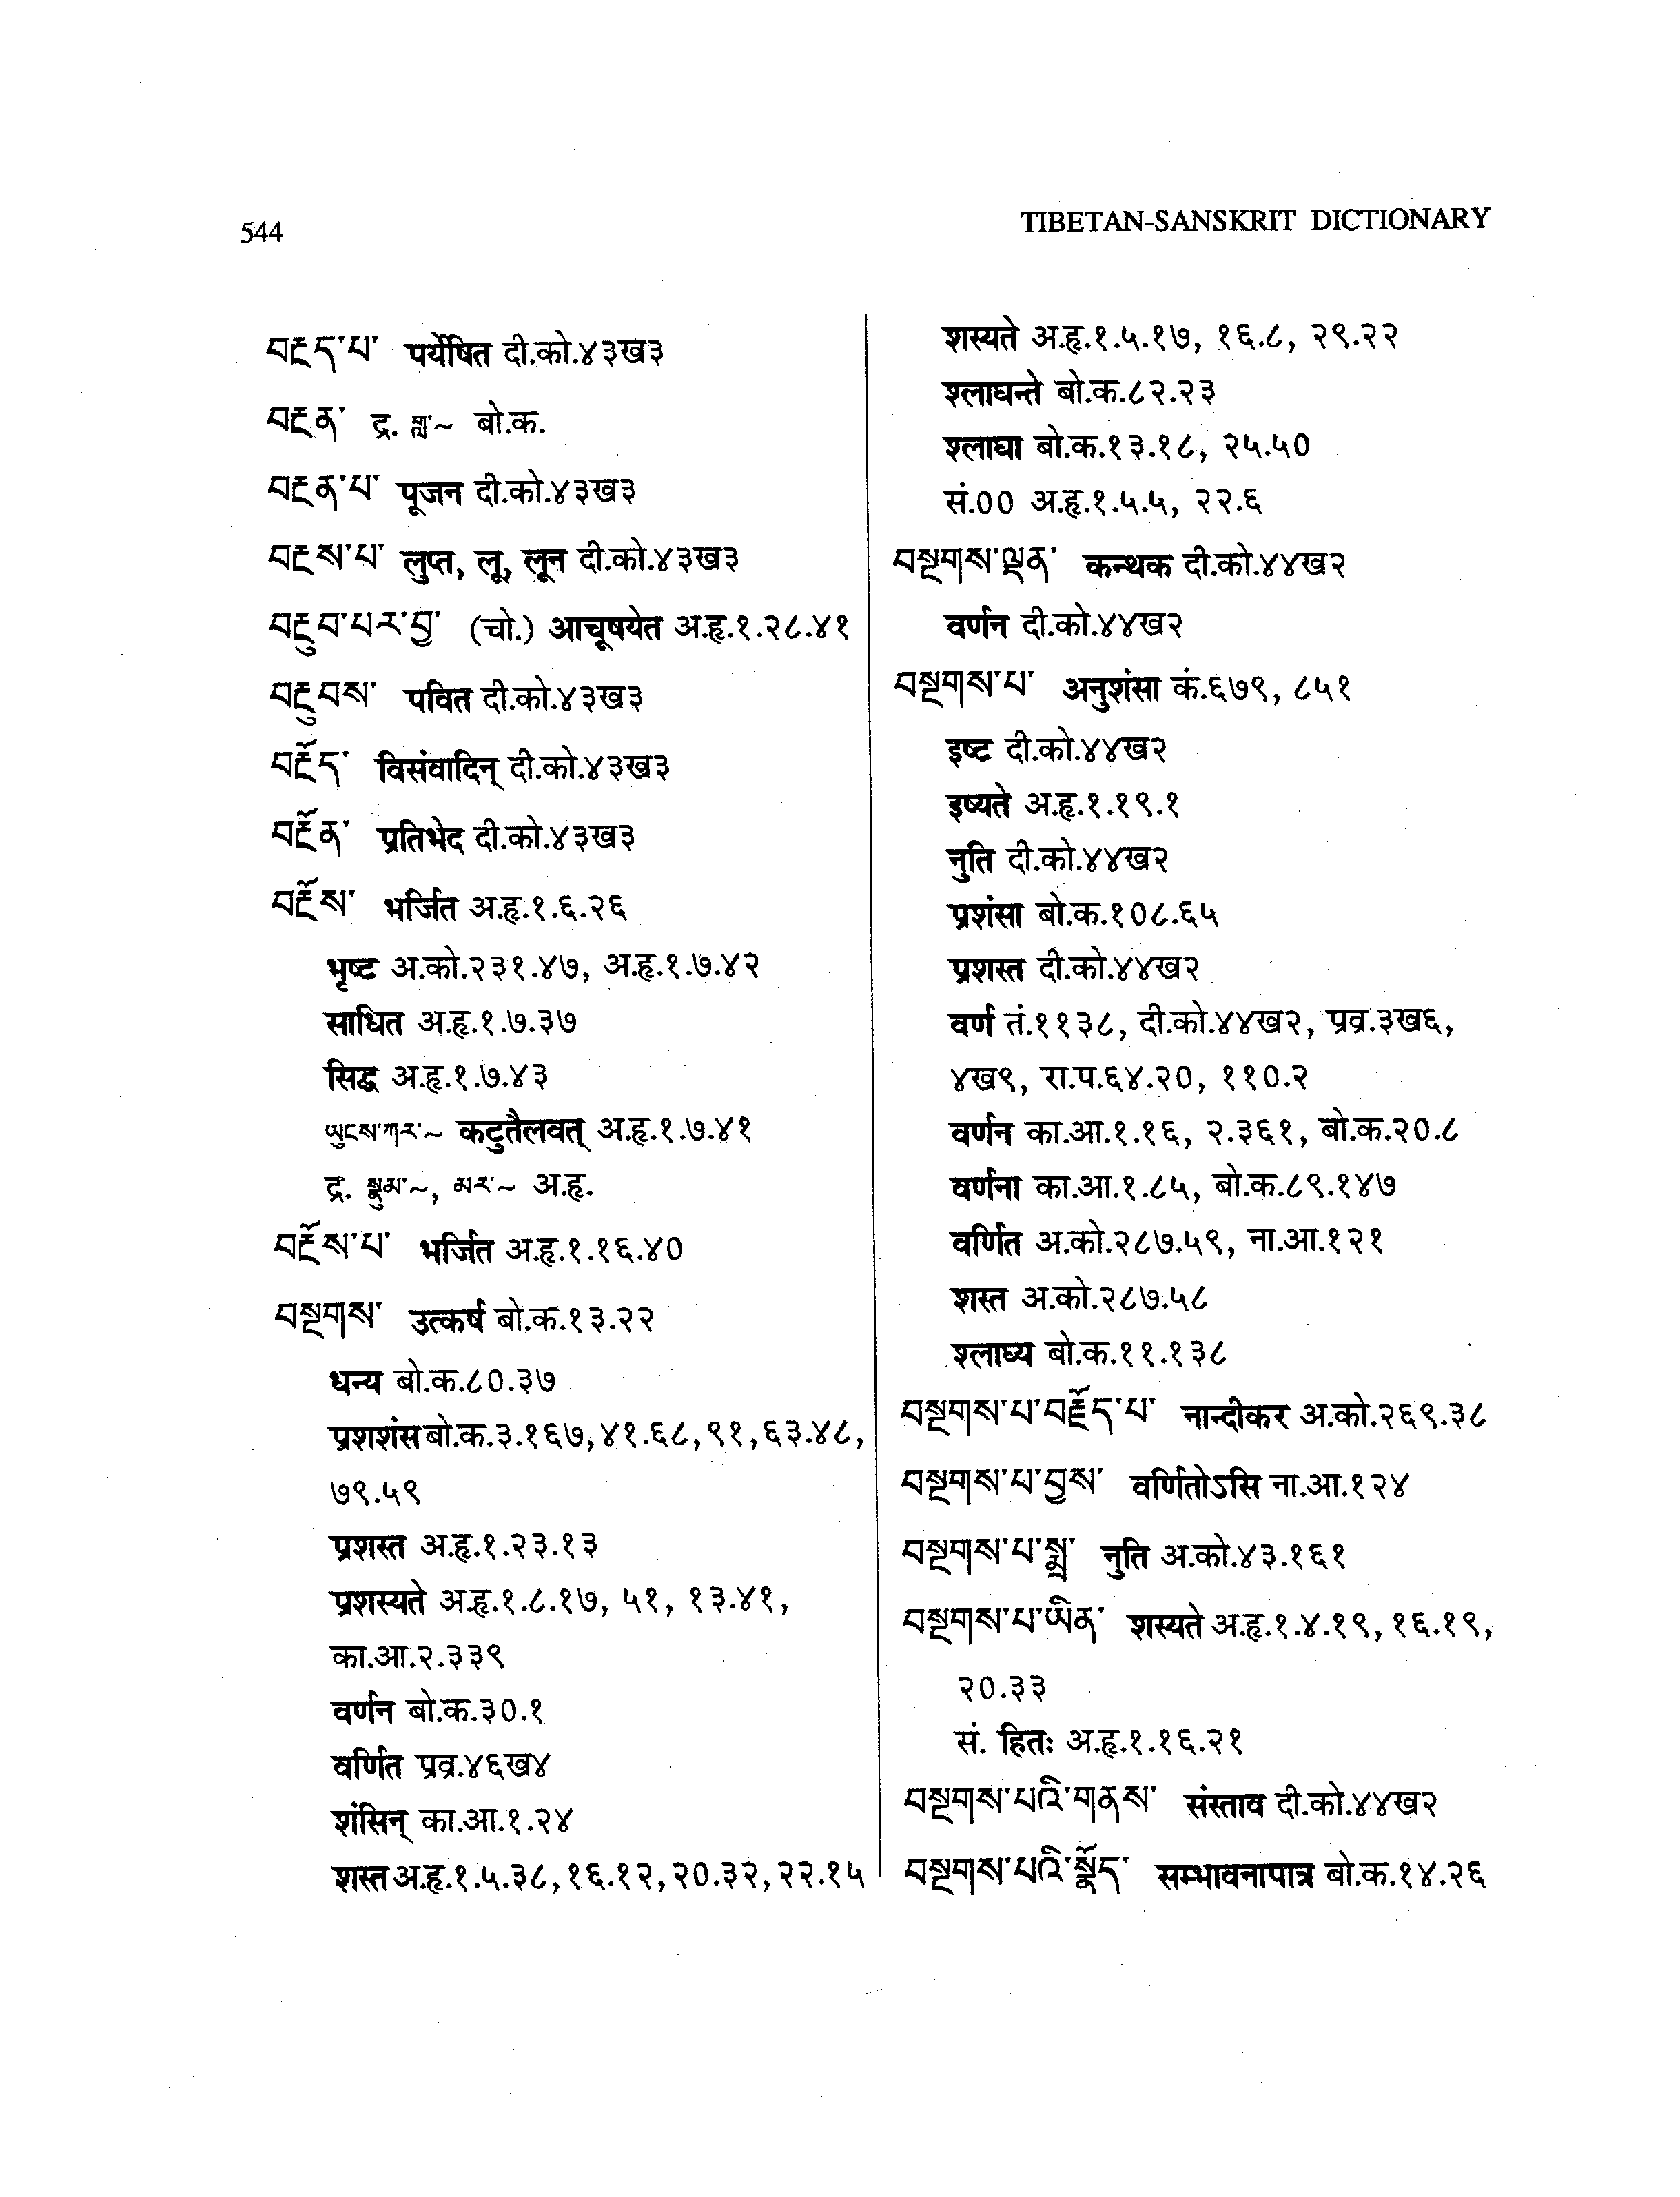 544
TIBETAN-SANSKRIT DICTIONARY
བརྔད་པ་ पर्येषित दी.को.४३ख३
བརྔན་ द्र. ~ बो.क.
བརྔན་པ་ पूजन दी.को.४३ख३
བརྔས་པ་ लुप्त, लू, लून दी.को.४३ख३
བརྔུབ་པར་བྱ་ (चो.) आचूषयेत अ.हृ.१.२८.४१
བརྔུབས་ पवित दी.को.४३ख३
བརྔོད་ विसंवादिन् दी.को.४३ख३
བརྔོན་ प्रतिभेद दी.को.४३ख३
བརྔོས་ भर्जित अ.हृ.१.६.२६
भृष्ट अ.को.२३१.४७, अ.हृ.१.७.४२
साधित अ.हृ.१.७.३७
सिद्ध अ.हृ.१.७.४३
ཡུངས་ཀར་~ कटुतैलवत् अ.हृ.१.७.४१
द्र. སྣུམ་~, མར་~ अ.हृ.
བརྔོས་པ་ भर्जित अ.हृ.१.१६.४०
བསྔགས་ उत्कर्ष बो.क.१३.२२
धन्य बो.क.८०.३७
प्रशशंस बो.क.३.१६७, ४१.६८, ९१, ६३.४८,
७९.५९
प्रशस्त अ.हृ.१.२३.१३
प्रशस्यते अ.हृ.१.८.१७, ५१, १३.४१,
का.आ.२.३३९
वर्णन बो.क.३०.१
वर्णित प्रव्र.४६ख४
शंसिन् का.आ.१.२४
शस्त अ.हृ.१.५.३८, १६.१२, २०.३२, २२.१५
शस्यते अ.हृ.१.५.१७, १६.८, २९.२२
श्लाघन्ते बो.क.८२.२३
श्लाघा बो.क.१३.१८, २५.५०
सं.०० अ.हृ.१.५.५, २२.६
བསྔགས་ལྡན་ कन्थक दी.को.४४ख२
वर्णन दी.को.४४ख२
བསྔགས་པ་ अनुशंसा कं.६७९, ८५१
इष्ट दी.को.४४ख२
इष्यते अ.हृ.१.१९.१
नुति दी.को.४४ख२
प्रशंसा बो.क.१०८.६५
प्रशस्त दी.को.४४ख२
वर्ण तं.११३८, दी.को.४४ख२, प्रव्र.३ख६,
४ख९, रा.प.६४.२०, ११०.२
वर्णन का.आ.१.१६, २.३६१, बो.क.२०.८
वर्णना का.आ.१.८५, बो.क.८९.१४७
वर्णित अ.को.२८७.५९, ना.आ.१२१
शस्त अ.को.२८७.५८
श्लाघ्य बो.क.११.१३८
བསྔགས་པ་བརྗོད་པ་ नान्दीकर अ.को.२६९.३८
བསྔགས་པ་བྱས་ वर्णितोऽसि ना.आ.१२४
བསྔགས་པ་སྨྲ་ नुति अ.को.४३.१६१
བསྔགས་པ་ཡིན་ शस्यते अ.हृ.१.४.१९, १६.१९,
२०.३३
सं. हितः अ.हृ.१.१६.२१
བསྔགས་པའི་གནས་ संस्ताव दी.को.४४ख२
བསྔགས་པའི་སྣོད་ सम्भावनापात्र बो.क.१४.२६